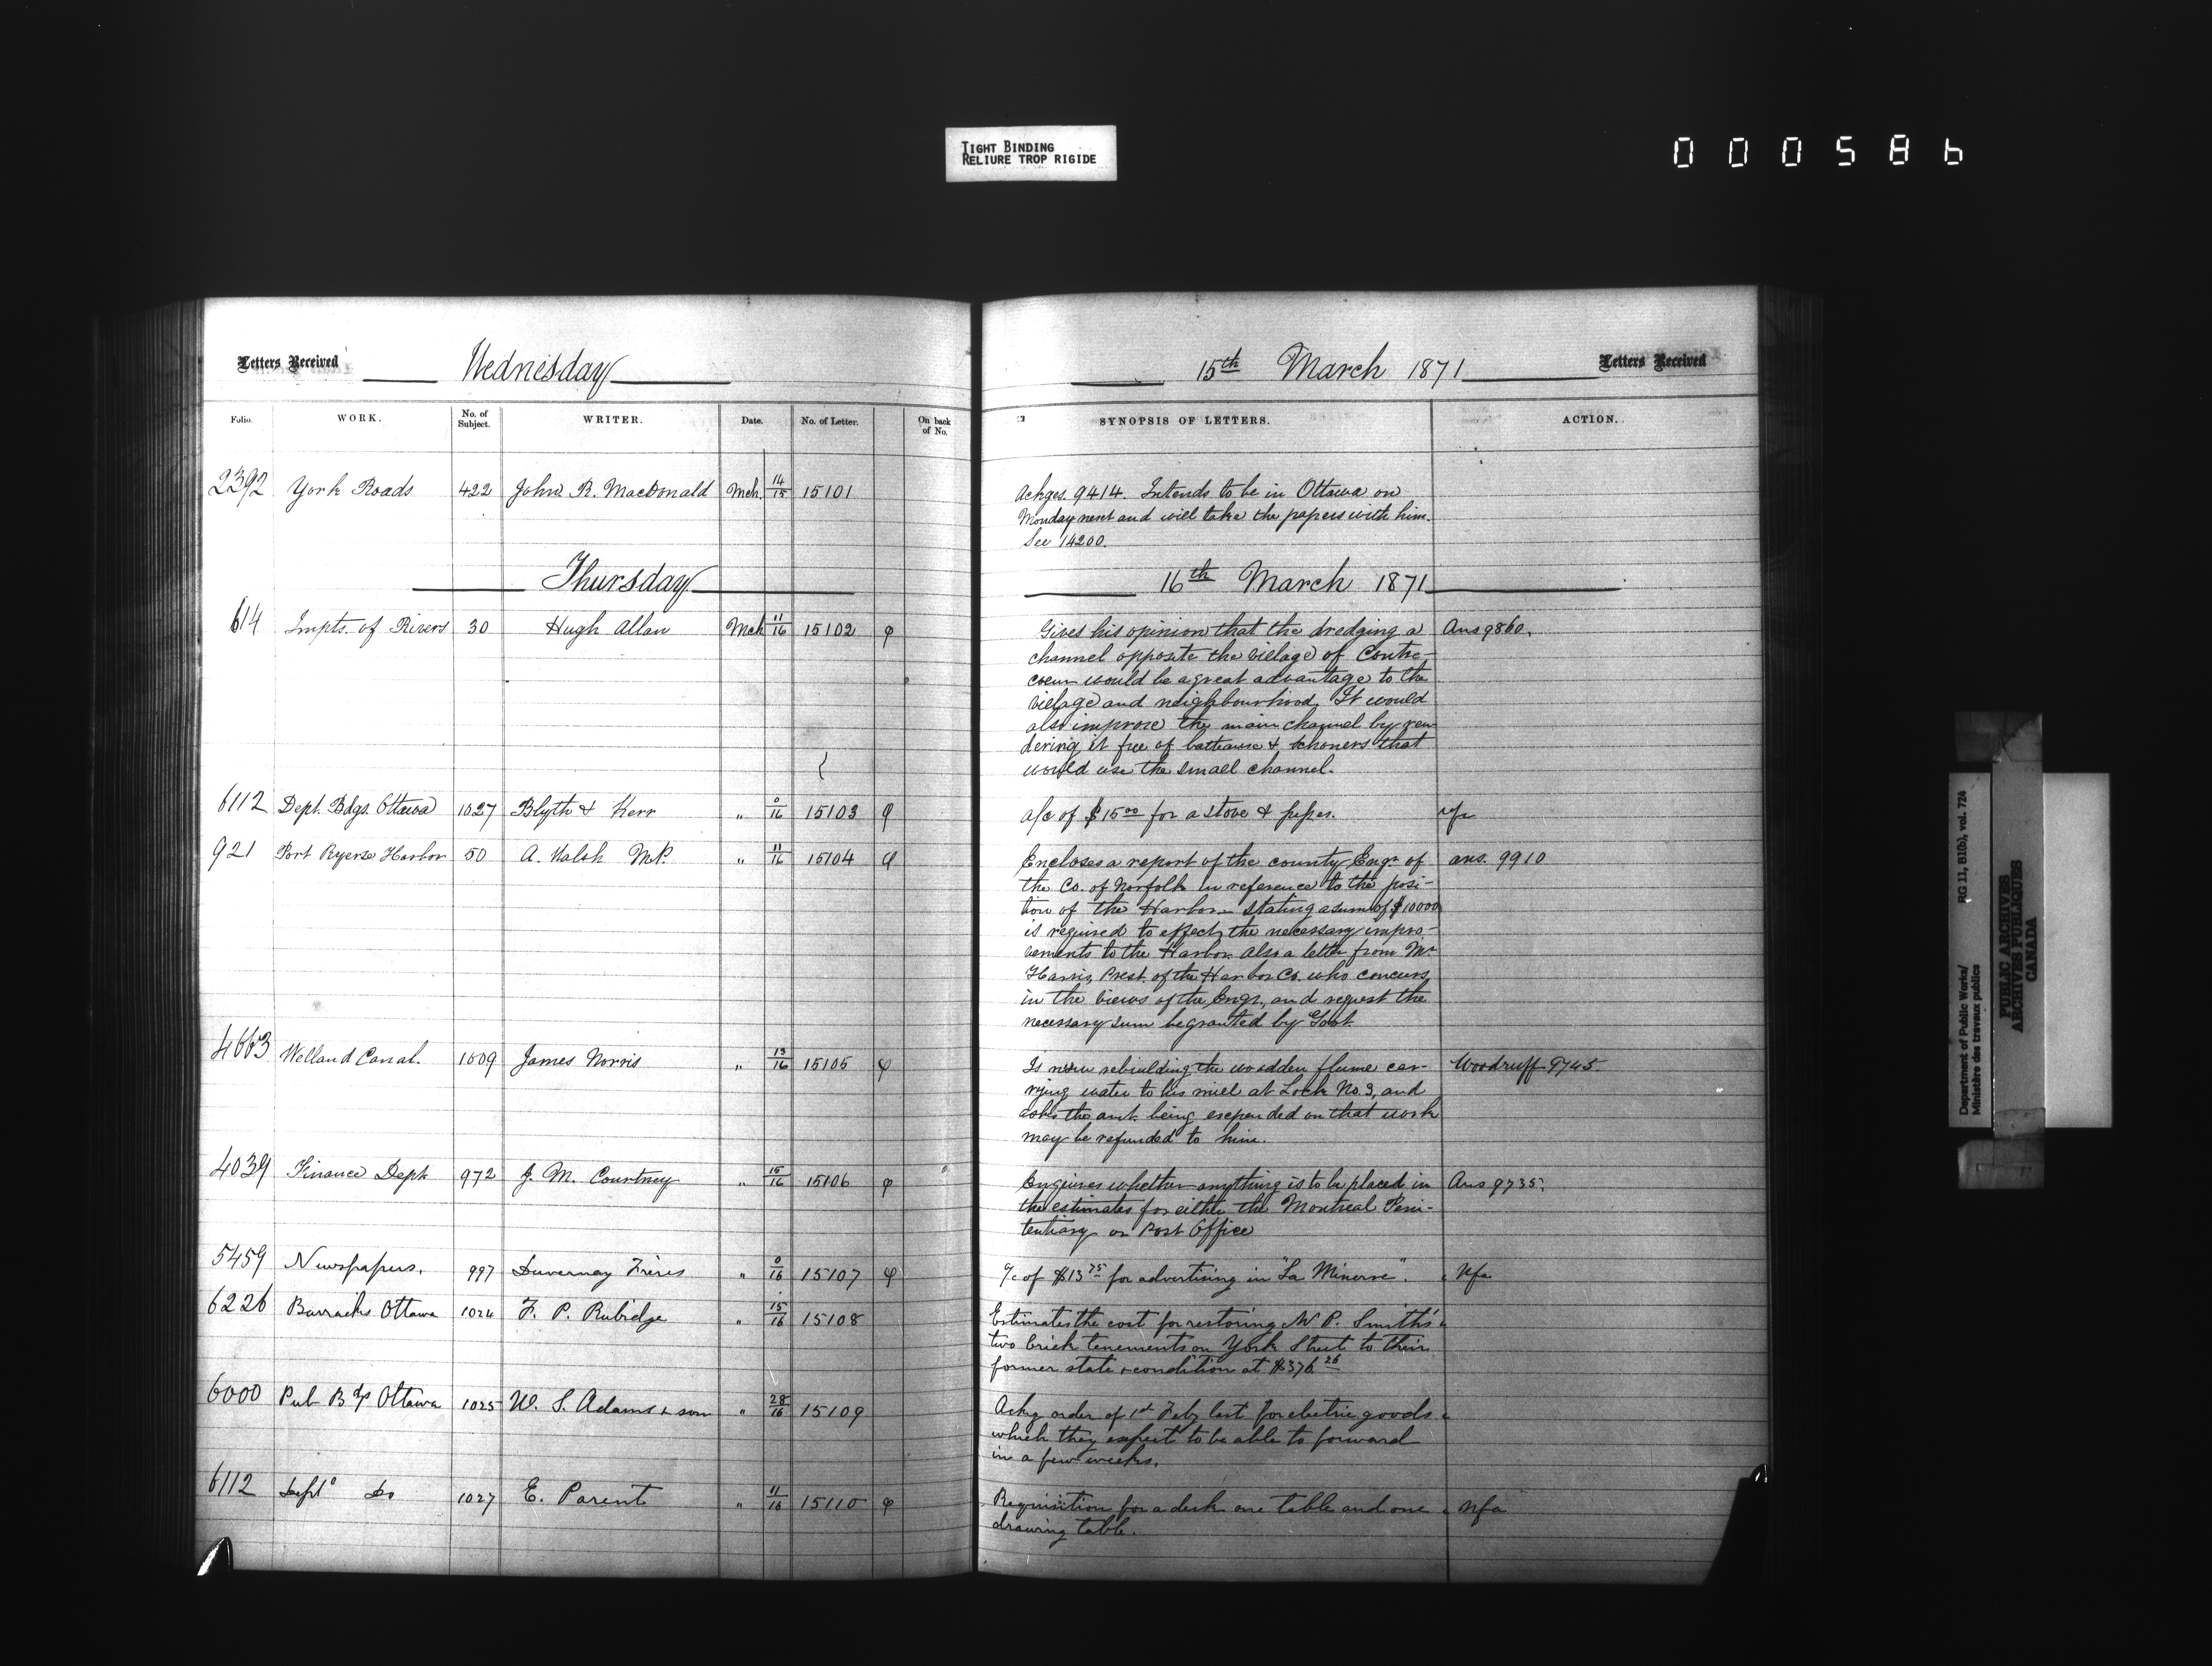 TIGHT BINDING
RELIURE TROP RIGIDE
000586
Letters Received Wednesday 15th March 1871 Letters Received
Folio. WORK. No. of Subject. WRITER. Date. No. of Letter. On back of No. SYNOPSIS OF LETTERS. ACTION.
2392 York Roads 422 John R. MacDonald Mch. 14/15 15101 Ackges. 9414. Intends to be in Ottawa on
Monday next and will take the papers with him.
See 14200.
Thursday 16th March 1871
614 Impts. of Rivers 30 Hugh Allan Mch 11/16 15102 φ Gives his opinion that the dredging a Ans 9860.
channel opposite the village of Contre-
coeur would be a great advantage to the
village and neighbourhood. It would
also improve the main channel by ren-
dering it free of batteaux & schoners that
would use the small channel.
6112 Dept. Bdgs. Ottawa 1027 Blyth & Kerr " 0/16 15103 φ a/c of $15.00 for a stove & pipes. nfa
921 Port Ryerse Harbor 50 A. Walsh M.P. " 11/16 15104 φ Encloses a report of the county Engr. of ans. 9910
the Co. of Norfolk in reference to the posi-
tion of the Harbor - stating a sum of $10000
is required to effect the necessary impro-
vements to the Harbor also a letter from Mr
Harris, Prest. of the Harbor Co. who concurs
in the views of the Engr, and request the
necessary sum be granted by Govt.
4663 Welland Canal. 1009 James Norris " 13/16 15105 φ Is now rebuilding the wooden flume car- Woodruff 9745.
rying water to his mill at Lock No. 3, and
asks the amt. being expended on that work
may be refunded to him.
4039 Finance Dept 972 J. M. Courtney " 15/16 15106 φ Enquires whether anything is to be placed in Ans 9735.
the estimates for either the Montreal Peni-
tentiary or Post Office
5459 Newspapers. 997 Duvernay Frères " 0/16 15107 φ a/c of $13.75 for advertising in "La Minerve". Nfa
6226 Barracks Ottawa 1024 F. P. Rubidge " 15/16 15108 Estimates the cost for restoring W. P. Smith's
two brick tenements on York Street to their
former state & condition at $376.26
6000 Pub Bdgs Ottawa 1025 W. S. Adams & son " 28/16 15109 Ackg order of 1st Feby last for electric goods
which they expect to be able to forward
in a few weeks.
6112 Deptl Do 1027 E. Parent " 11/16 15110 φ Requisition for a desk one table and one Nfa
drawing table.
Department of Public Works/ RG 11, B1(b), vol. 724
Ministère des travaux publics
PUBLIC ARCHIVES
ARCHIVES PUBLIQUES
CANADA